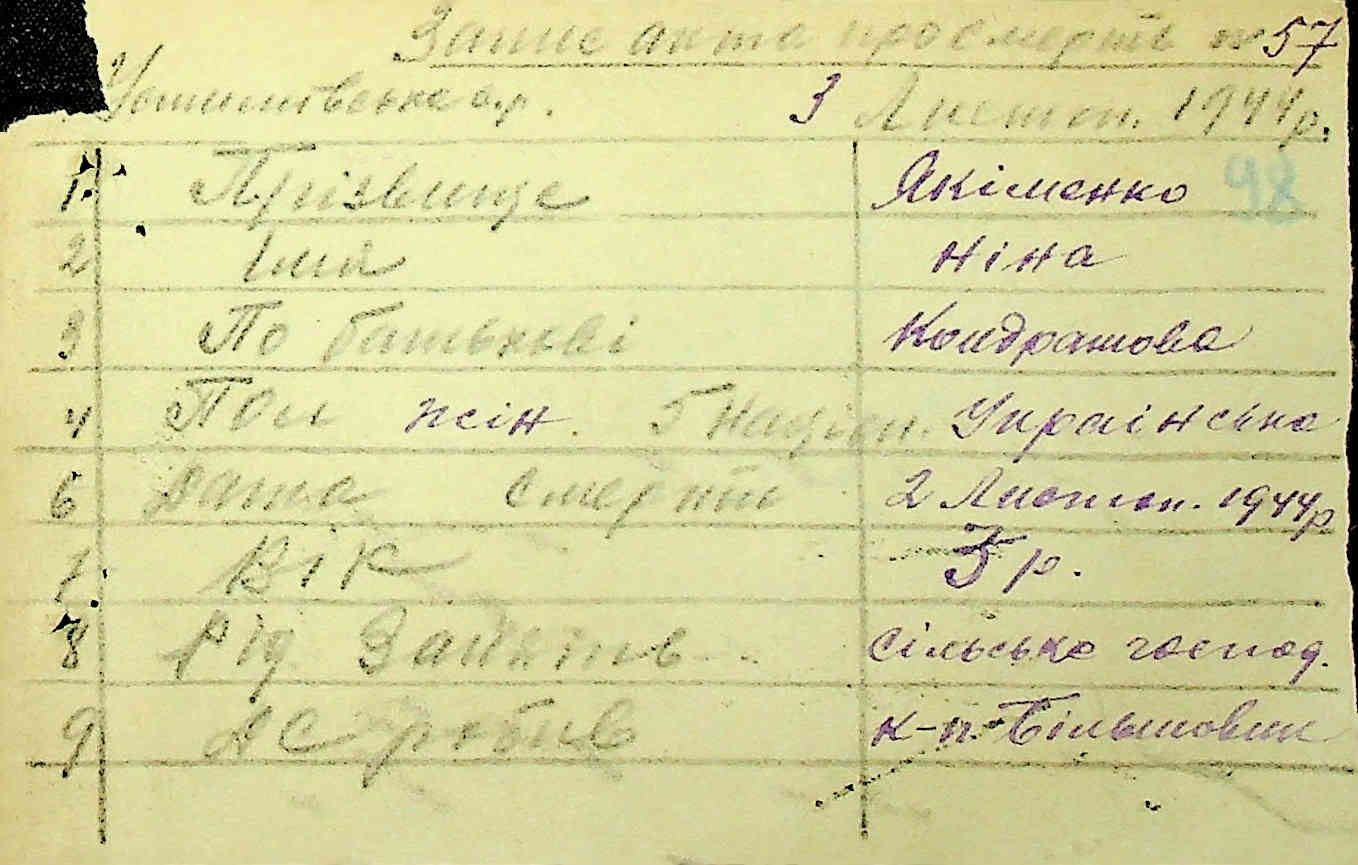 Запис акта про смерть № 57
3 Листоп. 1944 р.
1 Прізвище Якіменко 98
2 Імя Ніна
3 По батькові Кондратова
4 Пол жін. 5 Націон. Українська
6 Дата смерти 2 Листоп. 1944 р
7 Вік 5 р.
8 Рід Занять сільсько господ.
9 Де робив к-п. Більшовик